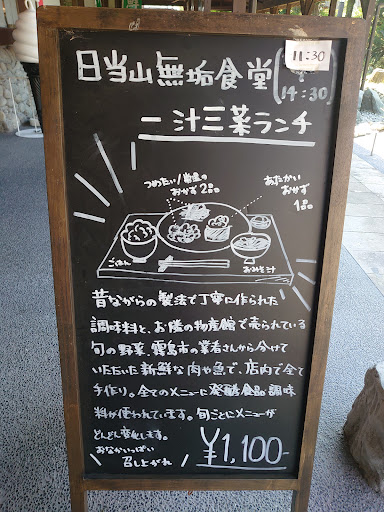 日当山無垢食堂
11:30
14:30
一汁三菜ランチ
つめたい/常温の
おかず2品
あたたかい
おかず
1品
ごはん
おみそ汁
昔ながらの製法で丁寧に作られた
調味料と、お隣の物産館で売られている
旬の野菜、霧島市の業者さんから分けて
いただいた新鮮な肉や魚で、店内で全て
手作り。全てのメニューに発酵食品調味
料が使われています。旬ごとにメニューが
どんどん変化します。
おなかいっぱい
召し上がれ
¥1,100-